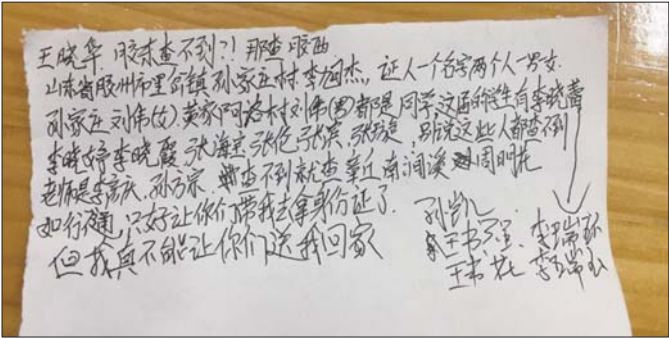 王晓华 胶东查不到?! 那查胶西
山东省胶州市里岔镇孙家庄村李旭杰,证人一个名字两个人一男女.
孙家庄刘伟(女).黄家河洛村刘伟(男)都是同学,这届的学生有李晓蕾
李晓婷李晓霞张海燕张伦张滨,张璇,别说这些人都查不到
老师是李彦庆.孙方宗.查不到就查董近南涧溪周明花
如行不通,只好让你们带我去拿身份证了.
但我真不能让你们送我回家
孙凯
王书 李瑞环
王书花 李瑞